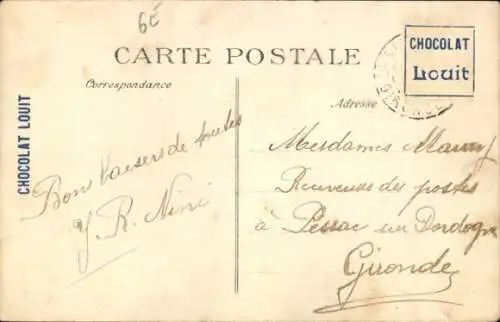 6€
CARTE POSTALE
CHOCOLAT
Louit
Correspondance
Adresse
CHOCOLAT LOUIT
Bons baisers de toutes
Y. R. Nini
Mesdames
Receveuses des postes
à Pessac sur Dordogne
Gironde